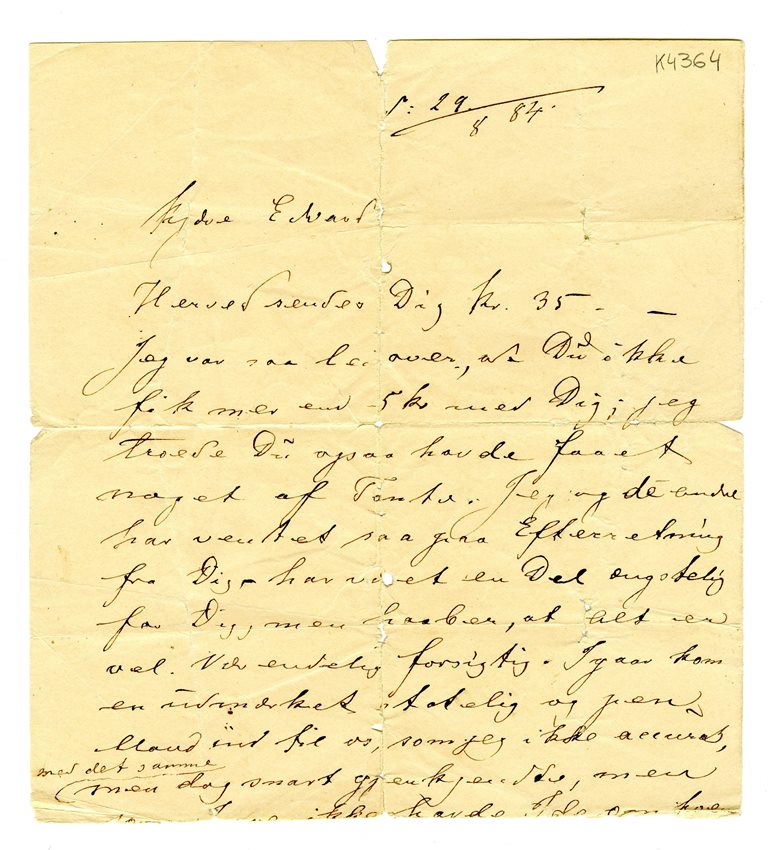 K4364
d: 29/8 84.
Kjære Edvard
Herved sendes Dig kr. 35 - –
Jeg var saa lei over, at Du ikke
fik mer end 5 kr med Dig; jeg
troede Du ogsaa havde faaet
noget af Tante. Jeg og de andre
har ventet saa paa Efterretning
fra Dig - har været en Del ængstelig
for Dig, men haaber, at Alt er
vel. Vær endelig forsigtig. Igaar kom
en udmærket statelig og pen
Mand ind til os, som jeg ikke accurat,
med det samme
men dog snart gjenkjendte, men
ikke havde Ide om